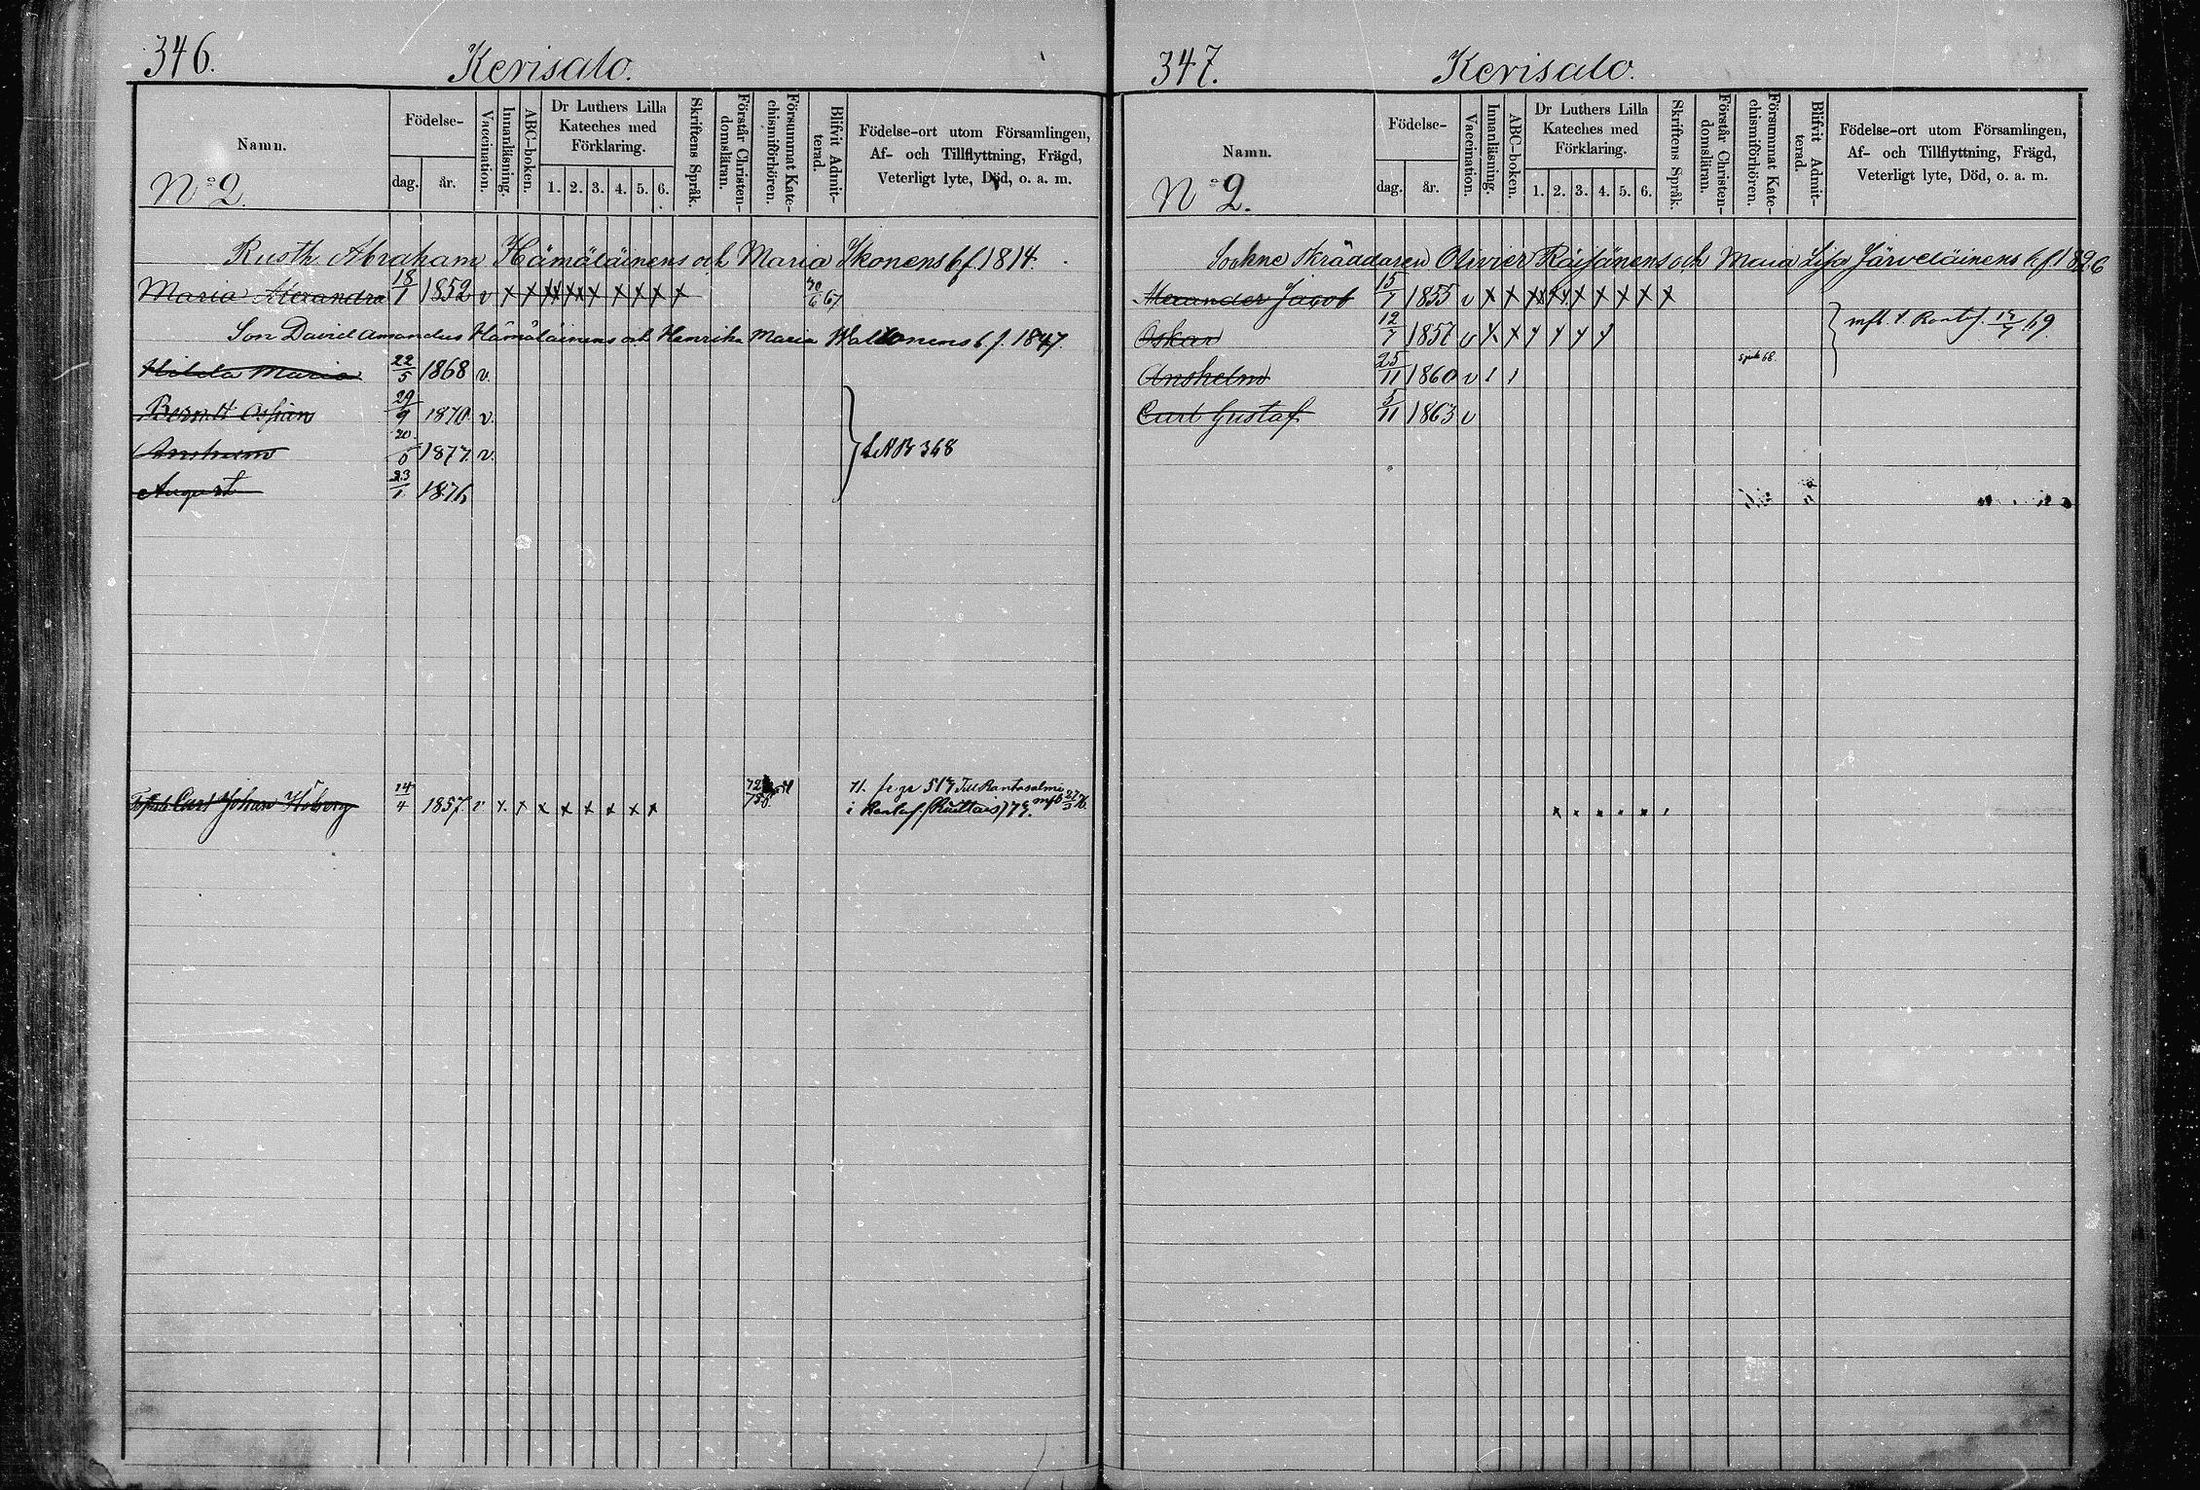 346.
Kerisalo.
Namn.
Födelse-
dag.
år.
Vaccination.
Innanläsning.
ABC-boken.
Dr Luthers Lilla
Kateches med
Förklaring.
1. 2. 3. 4. 5. 6.
Skriftens Språk.
Förstår Christen-
domsläran.
Försummat Kate-
chismiförhören.
Blifvit Admit-
terad.
Födelse-ort utom Församlingen,
Af- och Tillflyttning, Frägd,
Veterligt lyte, Död, o. a. m.
No 2.
Rusth. Abraham Hämäläinens och Maria Ikonens b f. 1814.
Maria Alexandra 18/1 1852 v x x xx xx x x x x x 30/6 67
Son David Amandus Hämäläinens och Henrika Maria b. f. 1847.
Hilda Maria 22/5 1868 v.
Berndt 29/9 1870. v.
20/5 1877. v.
348
August 23/1 1876
Carl Johan 14/4 1857. v x. x x x x x x x
71. 517 Till Rantasalmi
i
347.
Kerisalo.
Namn.
Födelse-
dag.
år.
Vaccination.
Innanläsning.
ABC-boken.
Dr Luthers Lilla
Kateches med
Förklaring.
1. 2. 3. 4. 5. 6.
Skriftens Språk.
Förstår Christen-
domsläran.
Försummat Kate-
chismiförhören.
Blifvit Admit-
terad.
Födelse-ort utom Församlingen,
Af- och Tillflyttning, Frägd,
Veterligt lyte, Död, o. a. m.
No 2.
Sockne Skräddaren Olivier Räisänens och Maria Lisa Järveläinens b. f 1826
Alexander Jacob 15/7 1855 v x x xx xx x x x x x
Oskar 12/7 1857 v x x x x x x
69.
Anshelm 25/11 1860 v / /
68.
Carl Gustaf 5/11 1863 v